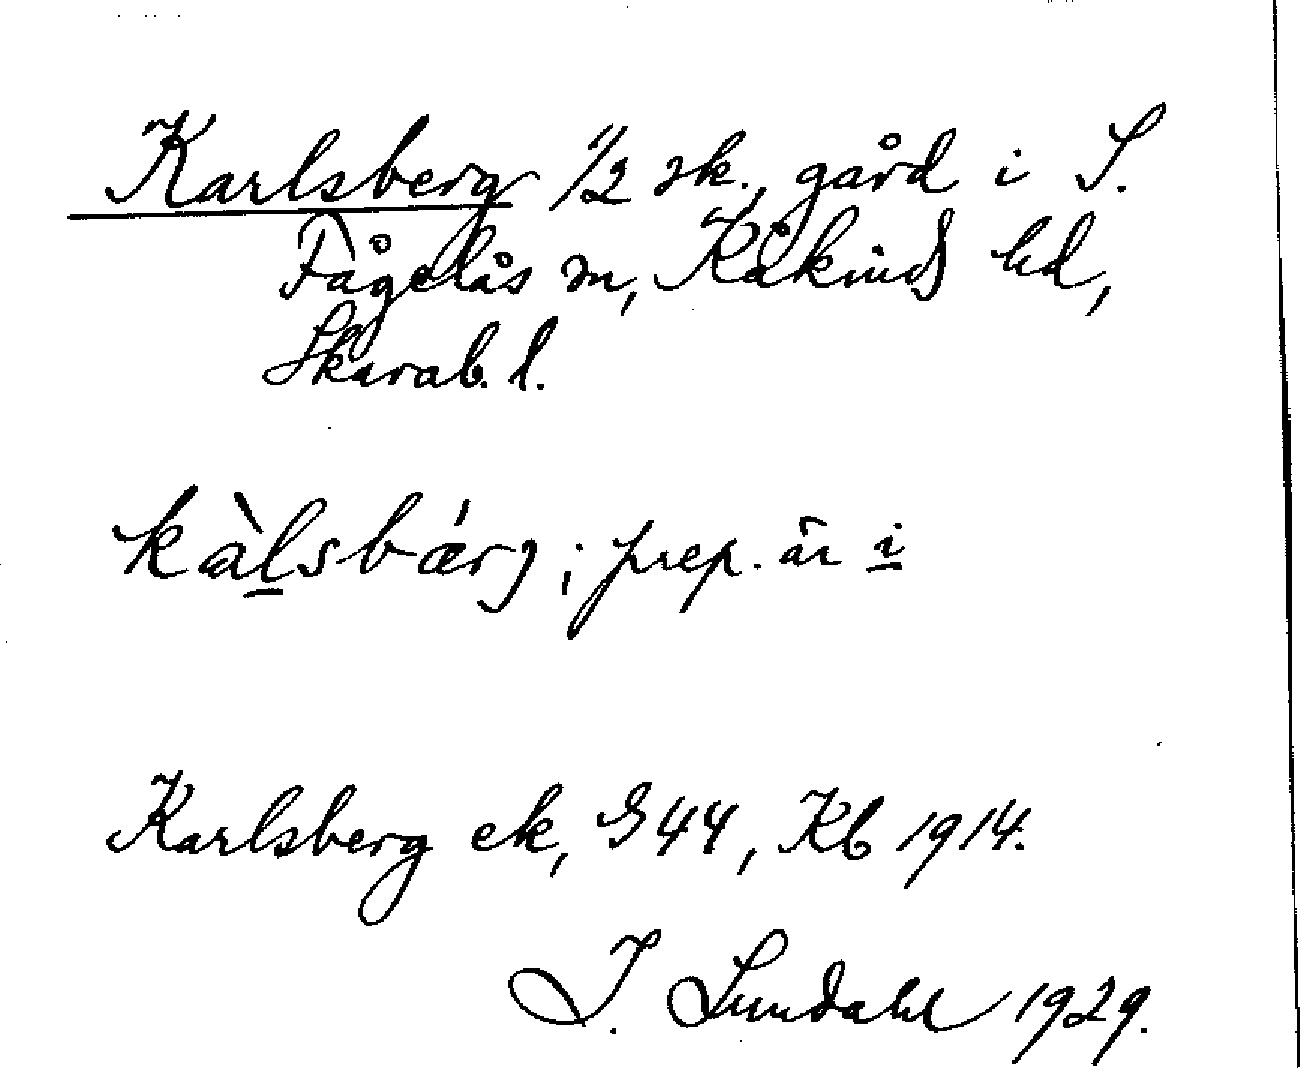 Karlsberg 1/2 sk., gård i S.
Fågelås sn, Kåkinds hd,
Skarab. l.
kàlsbǽrj; prep. är i
Karlsberg ek, G44, Kb 1914.
I. Lundahl 1929.